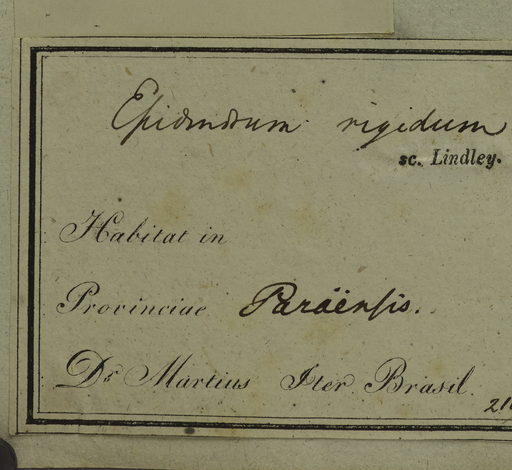 Epidendrum rigidum
sc. Lindley.
Habitat in
Provinciae Paraënsis.
Dr Martius Iter Brasil.